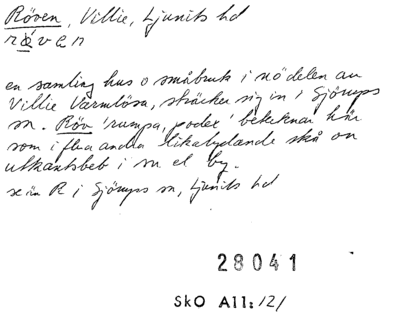 Röven, Villie, Ljunits hd
rǿvɐn
en samling hus o småbruk i nödelen av
Villie Varmlösa, sträcker sig in i Sjörups
sn. Röv 'rumpa, podex' betecknar här
som i flera andra likalydande skå on
utkantsbeb i sn el by.
se än R i Sjörups sn, Ljunits hd
28041
SkO All: 12/